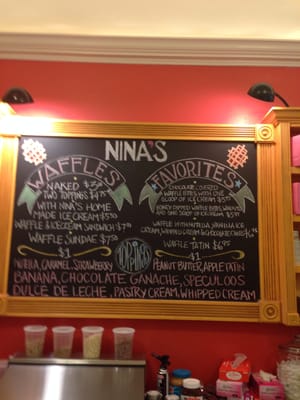 NINA'S
WAFFLES
NAKED $3.75
TWO TOPPINGS $4.75
WITH NINA'S HOME
MADE ICE CREAM $5.50
WAFFLE & ICECREAM SANDWICH $7.50
WAFFLE SUNDAE $7.50
FAVORITES
CHOCOLATE COVERED
WAFFLE BITES WITH ONE
SCOOP OF ICE CREAM
AND ONE SCOOP OF ICE CREAM
WAFFLE WITH NUTELLA, VANILLA ICE
CREAM, WHIPPED CREAM & CHOCOLATE
WAFFLE TATIN $6.95
$1
TOPPINGS
$1
NUTELLA, CARAMEL, STRAWBERRY
PEANUT BUTTER, APPLE TATIN
BANANA, CHOCOLATE GANACHE, SPECULOOS
DULCE DE LECHE, PASTRY CREAM, WHIPPED CREAM